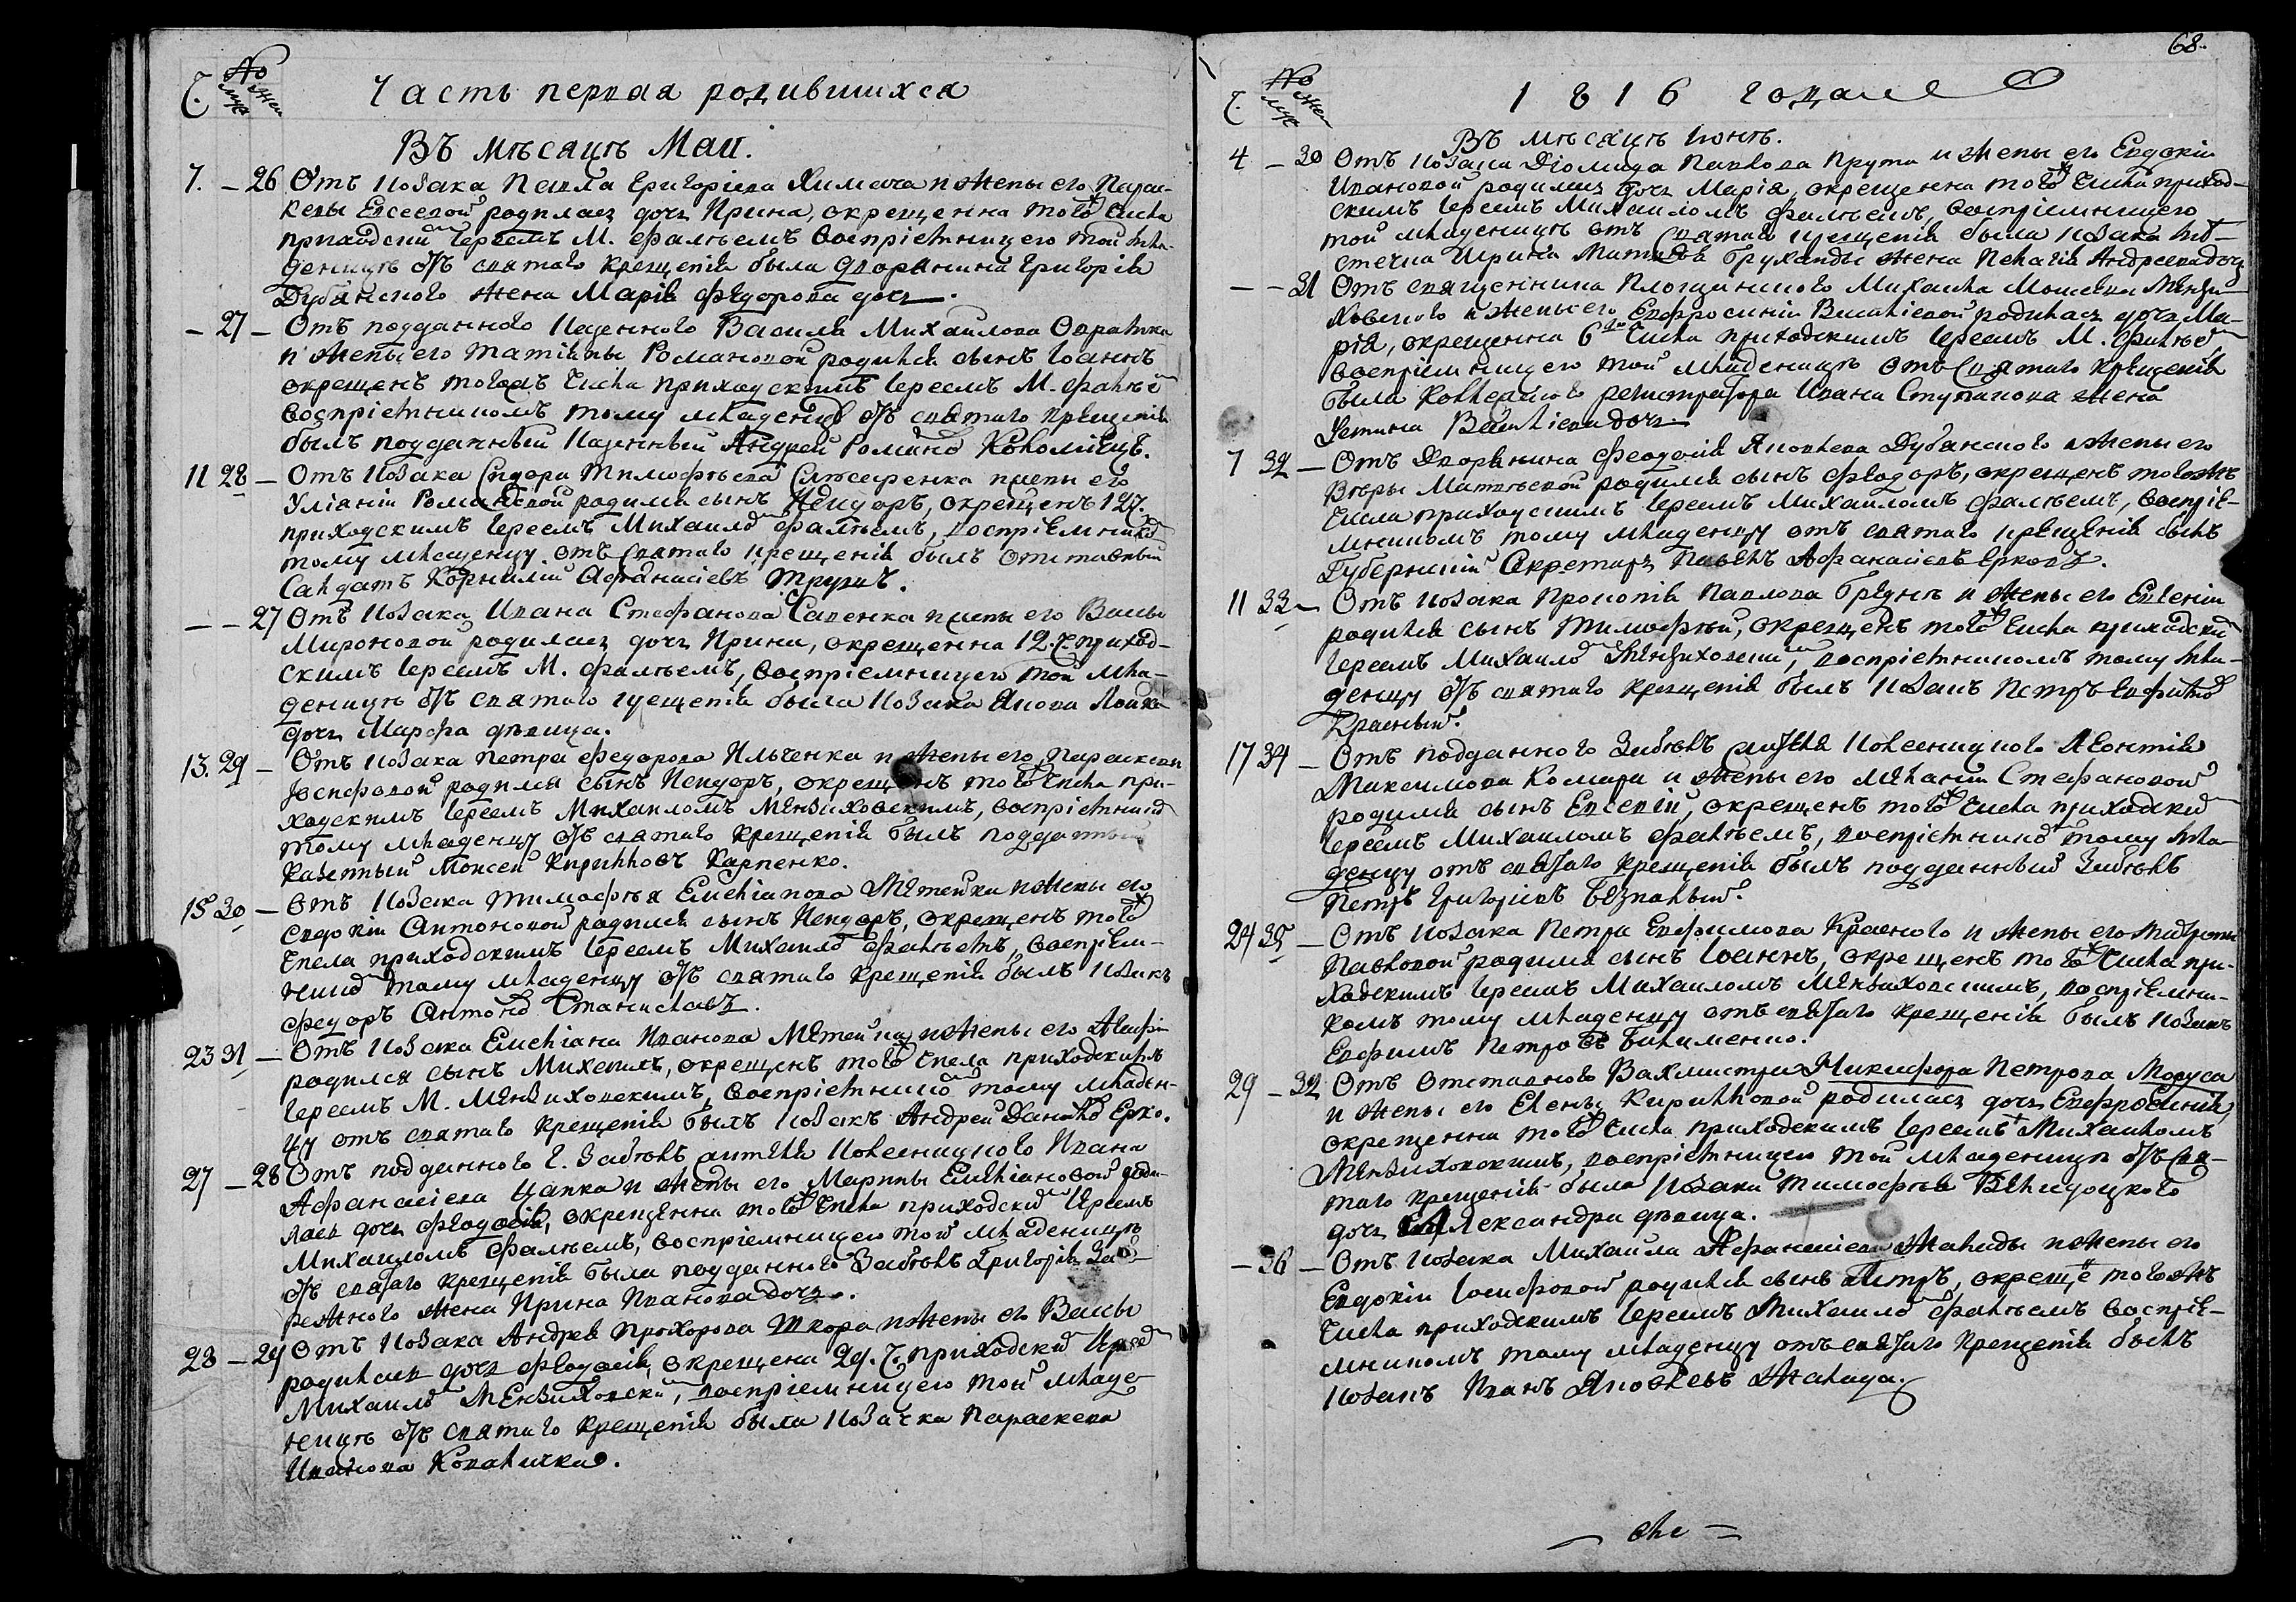 Ч. № муж жен
Часть первая родившихся
Въ мѣсяцѣ Маи.
7. – 26 Отъ козака Павла Григоріева Химича и жены его Парас-
кевы Евсеевой родилась дочь Ирина, окрещенна того ж числа
приходским Іереемъ М. Фалѣемъ воспріемницею той мла-
деницѣ отъ святаго крещенія была дворянина Григорія
Дубянского жена Марія Федорова дочь.
– 27 – Отъ подданного казенного Василя Михаилова
и жены его Татіаны Романовой родился сынъ Іоаннъ
окрещенъ тогожъ числа приходскимъ Іереемъ М. Фалѣем
воспріемникомъ тому младенцу отъ святаго крещенія
былъ подданный казенный Андрей Романов Коломіецъ.
11 28 – Отъ козака Сидора Тимофѣева
Уліаніи Романовой родился сынъ Исидоръ, окрещенъ 12 ч.
приходскимъ Іереемъ Михаилом Фалѣемъ, воспріемником
тому младенцу отъ святаго крещенія былъ отставный
Салдатъ Корнилій Афанасіевъ
– – 27 Отъ козака Ивана Стефанова Савенка и жены его Вассы
Мироновой родилась дочь Ирина, окрещенна 12. ч. приход-
скимъ Іереемъ М. Фалѣемъ, воспріемницею той мла-
деницѣ отъ святаго крещенія была козака Якова
дочь Марфа дѣвица.
13. 29 – Отъ козака Петра Федорова Ильченка и жены его Параскевы
Іосифовой родился сынъ Исидоръ, окрещенъ того ж числа при-
ходскимъ Іереемъ Михаиломъ Мензиховскимъ, воспріемником
тому младенцу отъ святаго крещенія былъ подданный
казенный Моисей Кирилловъ Карпенко.
15 30 – Отъ козака Тимофѣя Емеліанова Метейки и жены его
Евдокіи Антоновой родился сынъ Исидоръ, окрещенъ того ж
числа приходскимъ Іереемъ Михаилом Фалѣемъ, воспріем-
ником тому младенцу отъ святаго крещенія былъ козакъ
Федоръ Антонов Станиславъ.
23 31 – Отъ козака Емеліана Иванова Метейка и жены его
родился сынъ Михаилъ, окрещенъ того числа приходскимъ
Іереемъ М. Мензиховскимъ, воспріемником тому младен-
цу отъ святаго крещенія былъ козакъ Андрей Данилов Ерко.
27 – 28 Отъ подданного Г. Забѣлъ Ивана
Афанасіева Цапка и жены его Марины Емеліановой роди-
лась дочь Феодосія, окрещенна того ж числа приходским Іереемъ
Михаиломъ Фалѣемъ, воспріемницею той младеницѣ
отъ святаго крещенія была подданного Забѣлъ Григорія
жена Ирина Иванова дочь.
28 – 29 Отъ козака Андрея Прохорова Шкора и жены его Вассы
родилась дочь Феодосія, окрещена 29. ч. приходским Іереем
Михаилом Мензиховским, воспріемницею той младе-
ницѣ отъ святаго крещенія была козачка Параскева
Иванова Ковалиха.
68.
Ч. № муж жен
1816 года
Въ мѣсяцѣ Іюнѣ.
4 – 30 Отъ козака Діомида Павлова Прута и жены его Евдокіи
Ивановой родилась дочь Марія, окрещенна того ж числа приход-
скимъ Іереемъ Михаиломъ Фалѣемъ, воспріемницею
той младеницѣ отъ святаго крещенія была козака
жена Пелагія Андреева дочь
– – 31 Отъ священника Михаила Моисеева Мензи-
ховского и жены его Евфросиніи Василіевой родилась дочь Ма-
рія, окрещенна 6 числа приходскимъ Іереемъ М. Фалѣем
воспріемницею той младеницѣ отъ святаго крещенія
была Коллежского регистратора Ивана Ступакова жена
Устина Василіева дочь
7 32 – Отъ Дворянина Феодосія Яковлева Дубянского и жены его
Вѣры Матвѣевой родился сынъ Федоръ, окрещенъ тогожъ
числа приходскимъ Іереемъ Михаиломъ Фалѣемъ, воспріе-
мникомъ тому младенцу отъ святаго крещенія былъ
Губернскій Секретарь Павелъ Афанасіевъ
11 33 – Отъ козака Прокопія Павлова и жены его Евгеніи
родился сынъ Тимофѣй, окрещенъ того ж числа приходским
Іереемъ Михаилом Мензиховским, воспріемникомъ тому мла-
денцу отъ святаго крещенія былъ козакъ Петръ Евфимов
Красный.
17 34 – Отъ подданного Забѣлъ Леонтія
Максимова Комара и жены его Меланіи Стефановой
родился сынъ Евсевій, окрещенъ того ж числа приходским
Іереемъ Михаиломъ Фалѣемъ, воспріемником тому мла-
денцу отъ святаго крещенія былъ подданный Забѣлъ
Петръ Григоріевъ Безпалый.
24 35 – Отъ козака Петра Евфимова Красного и жены его
Павловой родился сынъ Іоаннъ, окрещенъ того ж числа при-
ходскимъ Іереемъ Михаиломъ Мензиховскимъ, воспріемни-
комъ тому младенцу отъ святаго крещенія былъ козакъ
Евфимъ Петровъ
29 – 32 Отъ отставного Вахмистра Никифора Петрова
и жены его Елены Кирилловой родилась дочь Евфросинія
окрещенна того ж числа приходскимъ Іереемъ Михаиломъ
Мензиховскимъ, воспріемницею той младеницѣ отъ свя-
таго крещенія была козака Тимофѣя
дочь Александра дѣвица.
– 36 – Отъ козака Михаила Афанасіева Жалиды и жены его
Евдокіи Іосифовой родился сынъ Петръ, окрещен тогожъ
числа приходскимъ Іереемъ Михаилом Фалѣемъ воспріе-
мникомъ тому младенцу отъ святаго крещенія былъ
козакъ Иванъ Яковлевъ